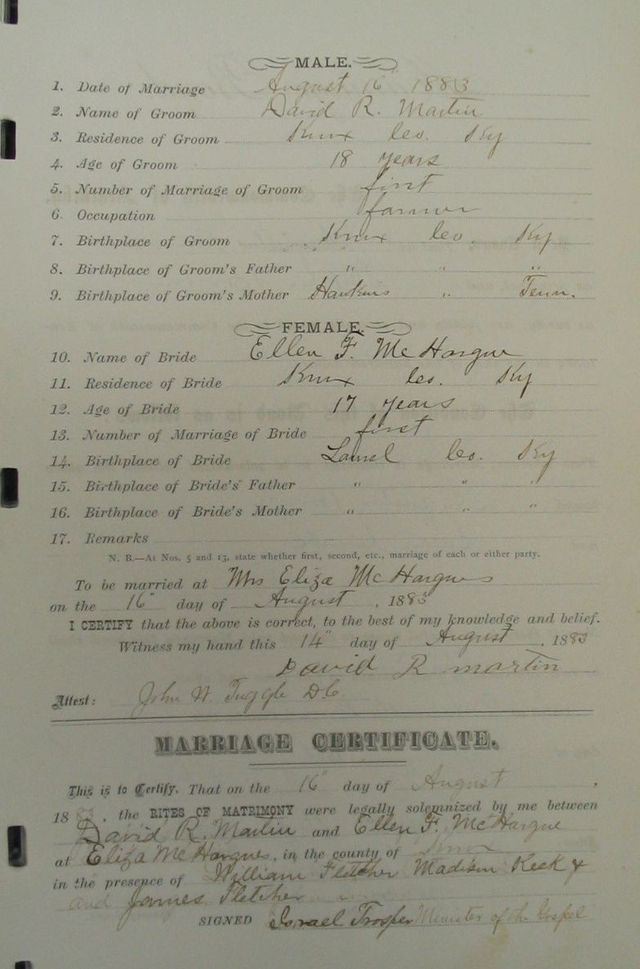 MALE.
1. Date of Marriage August 16" 1883
2. Name of Groom David R. Martin
3. Residence of Groom Knox Co. Ky
4. Age of Groom 18 years
5. Number of Marriage of Groom first
6. Occupation farmer
7. Birthplace of Groom Knox Co. Ky.
8. Birthplace of Groom's Father " " "
9. Birthplace of Groom's Mother Hawkins " Tenn.
FEMALE.
10. Name of Bride Ellen F. McHargue
11. Residence of Bride Knox Co. Ky
12. Age of Bride 17 years
13. Number of Marriage of Bride first
14. Birthplace of Bride Laurel Co. Ky
15. Birthplace of Bride's Father " " "
16. Birthplace of Bride's Mother " " "
17. Remarks
N. B.—At Nos. 5 and 13, state whether first, second, etc., marriage of each or either party.
To be married at Mrs Eliza McHargues
on the 16" day of August, 1883
I CERTIFY that the above is correct, to the best of my knowledge and belief.
Witness my hand this 14" day of August, 1883
David R Martin
Attest: John W. Tuggle D C
MARRIAGE CERTIFICATE.
This is to Certify, That on the 16" day of August
1883, the RITES OF MATRIMONY were legally solemnized by me between
David R. Martin and Ellen F. McHargue
at Eliza McHargues, in the county of Knox
in the presence of William Fletcher Madison Keck &
and James Fletcher
SIGNED Israel Trosper Minister of the Gospel